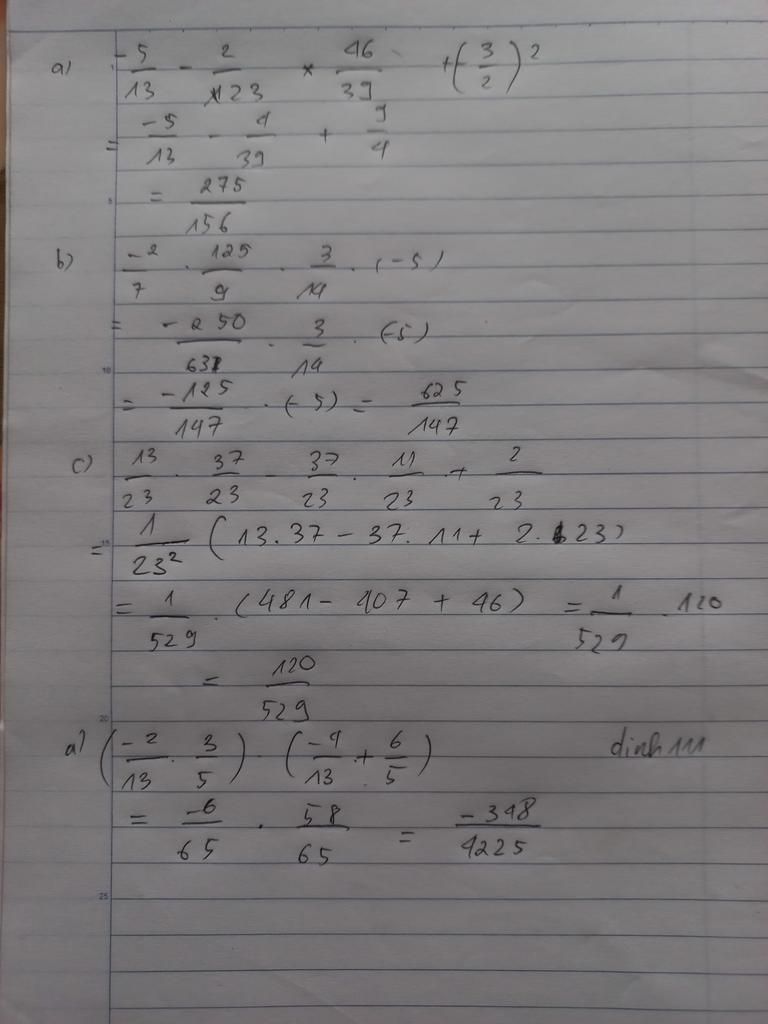 a) -5/13 - 2/23 × 46/39 + (-3/2)²
= -5/13 - 4/39 + 9/4
= 275/156
b) -2/7 . 125/9 . 3/14 . (-5)
= -250/63 . 3/14 . (-5)
= -125/147 . (-5) = 625/147
c) 13/23 . 37/23 - 37/23 . 11/23 + 2/23
= 1/23² (13.37 - 37.11 + 2.23)
= 1/529 . (481 - 407 + 46) = 1/529 . 120
= 120/529
a) (-2/13 . 3/5) . (-4/13 + 6/5)
dinh111
= -6/65 . 58/65 = -348/4225
5
10
15
20
25